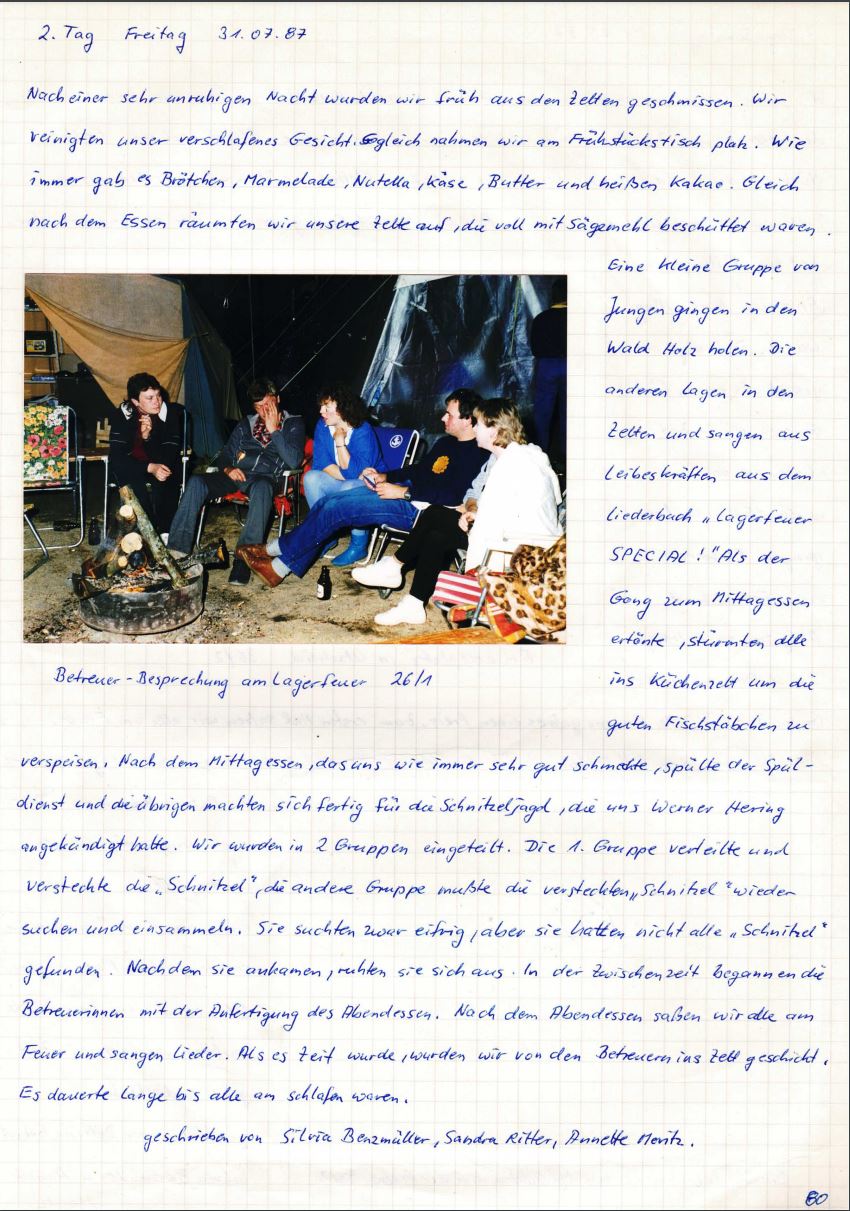 2. Tag Freitag 31.07.87
Nach einer sehr unruhigen Nacht wurden wir früh aus den Zelten geschmissen. Wir
reinigten unser verschlafenes Gesicht. Sogleich nahmen wir am Frühstückstisch platz. Wie
immer gab es Brötchen, Marmelade, Nutella, Käse, Butter und heißen Kakao. Gleich
nach dem Essen räumten wir unsere Zelte auf, die voll mit Sägemehl beschüttet waren.
Eine kleine Gruppe von
Jungen gingen in den
Wald Holz holen. Die
anderen lagen in den
Zelten und sangen aus
Leibeskräften aus dem
Liederbach „Lagerfeuer
SPECIAL!" Als der
Gong zum Mittagessen
ertönte, stürmten alle
ins Küchenzelt um die
guten Fischstäbchen zu
Betreuer-Besprechung am Lagerfeuer 26/1
verspeisen. Nach dem Mittagessen, das uns wie immer sehr gut schmeckte, spülte der Spül-
dienst und die übrigen machten sich fertig für die Schnitzeljagd, die uns Werner Hering
angekündigt hatte. Wir wurden in 2 Gruppen eingeteilt. Die 1. Gruppe verteilte und
versteckte die „Schnitzel", die andere Gruppe mußte die versteckten „Schnitzel" wieder
suchen und einsammeln. Sie suchten zwar eifrig, aber sie hatten nicht alle „Schnitzel"
gefunden. Nachdem sie ankamen, ruhten sie sich aus. In der Zwischenzeit begannen die
Betreuerinnen mit der Anfertigung des Abendessen. Nach dem Abendessen saßen wir alle am
Feuer und sangen Lieder. Als es Zeit wurde, wurden wir von den Betreuern ins Zelt geschickt.
Es dauerte lange bis alle am schlafen waren.
geschrieben von Silvia Benzmüller, Sandra Ritter, Annette Moritz.
60